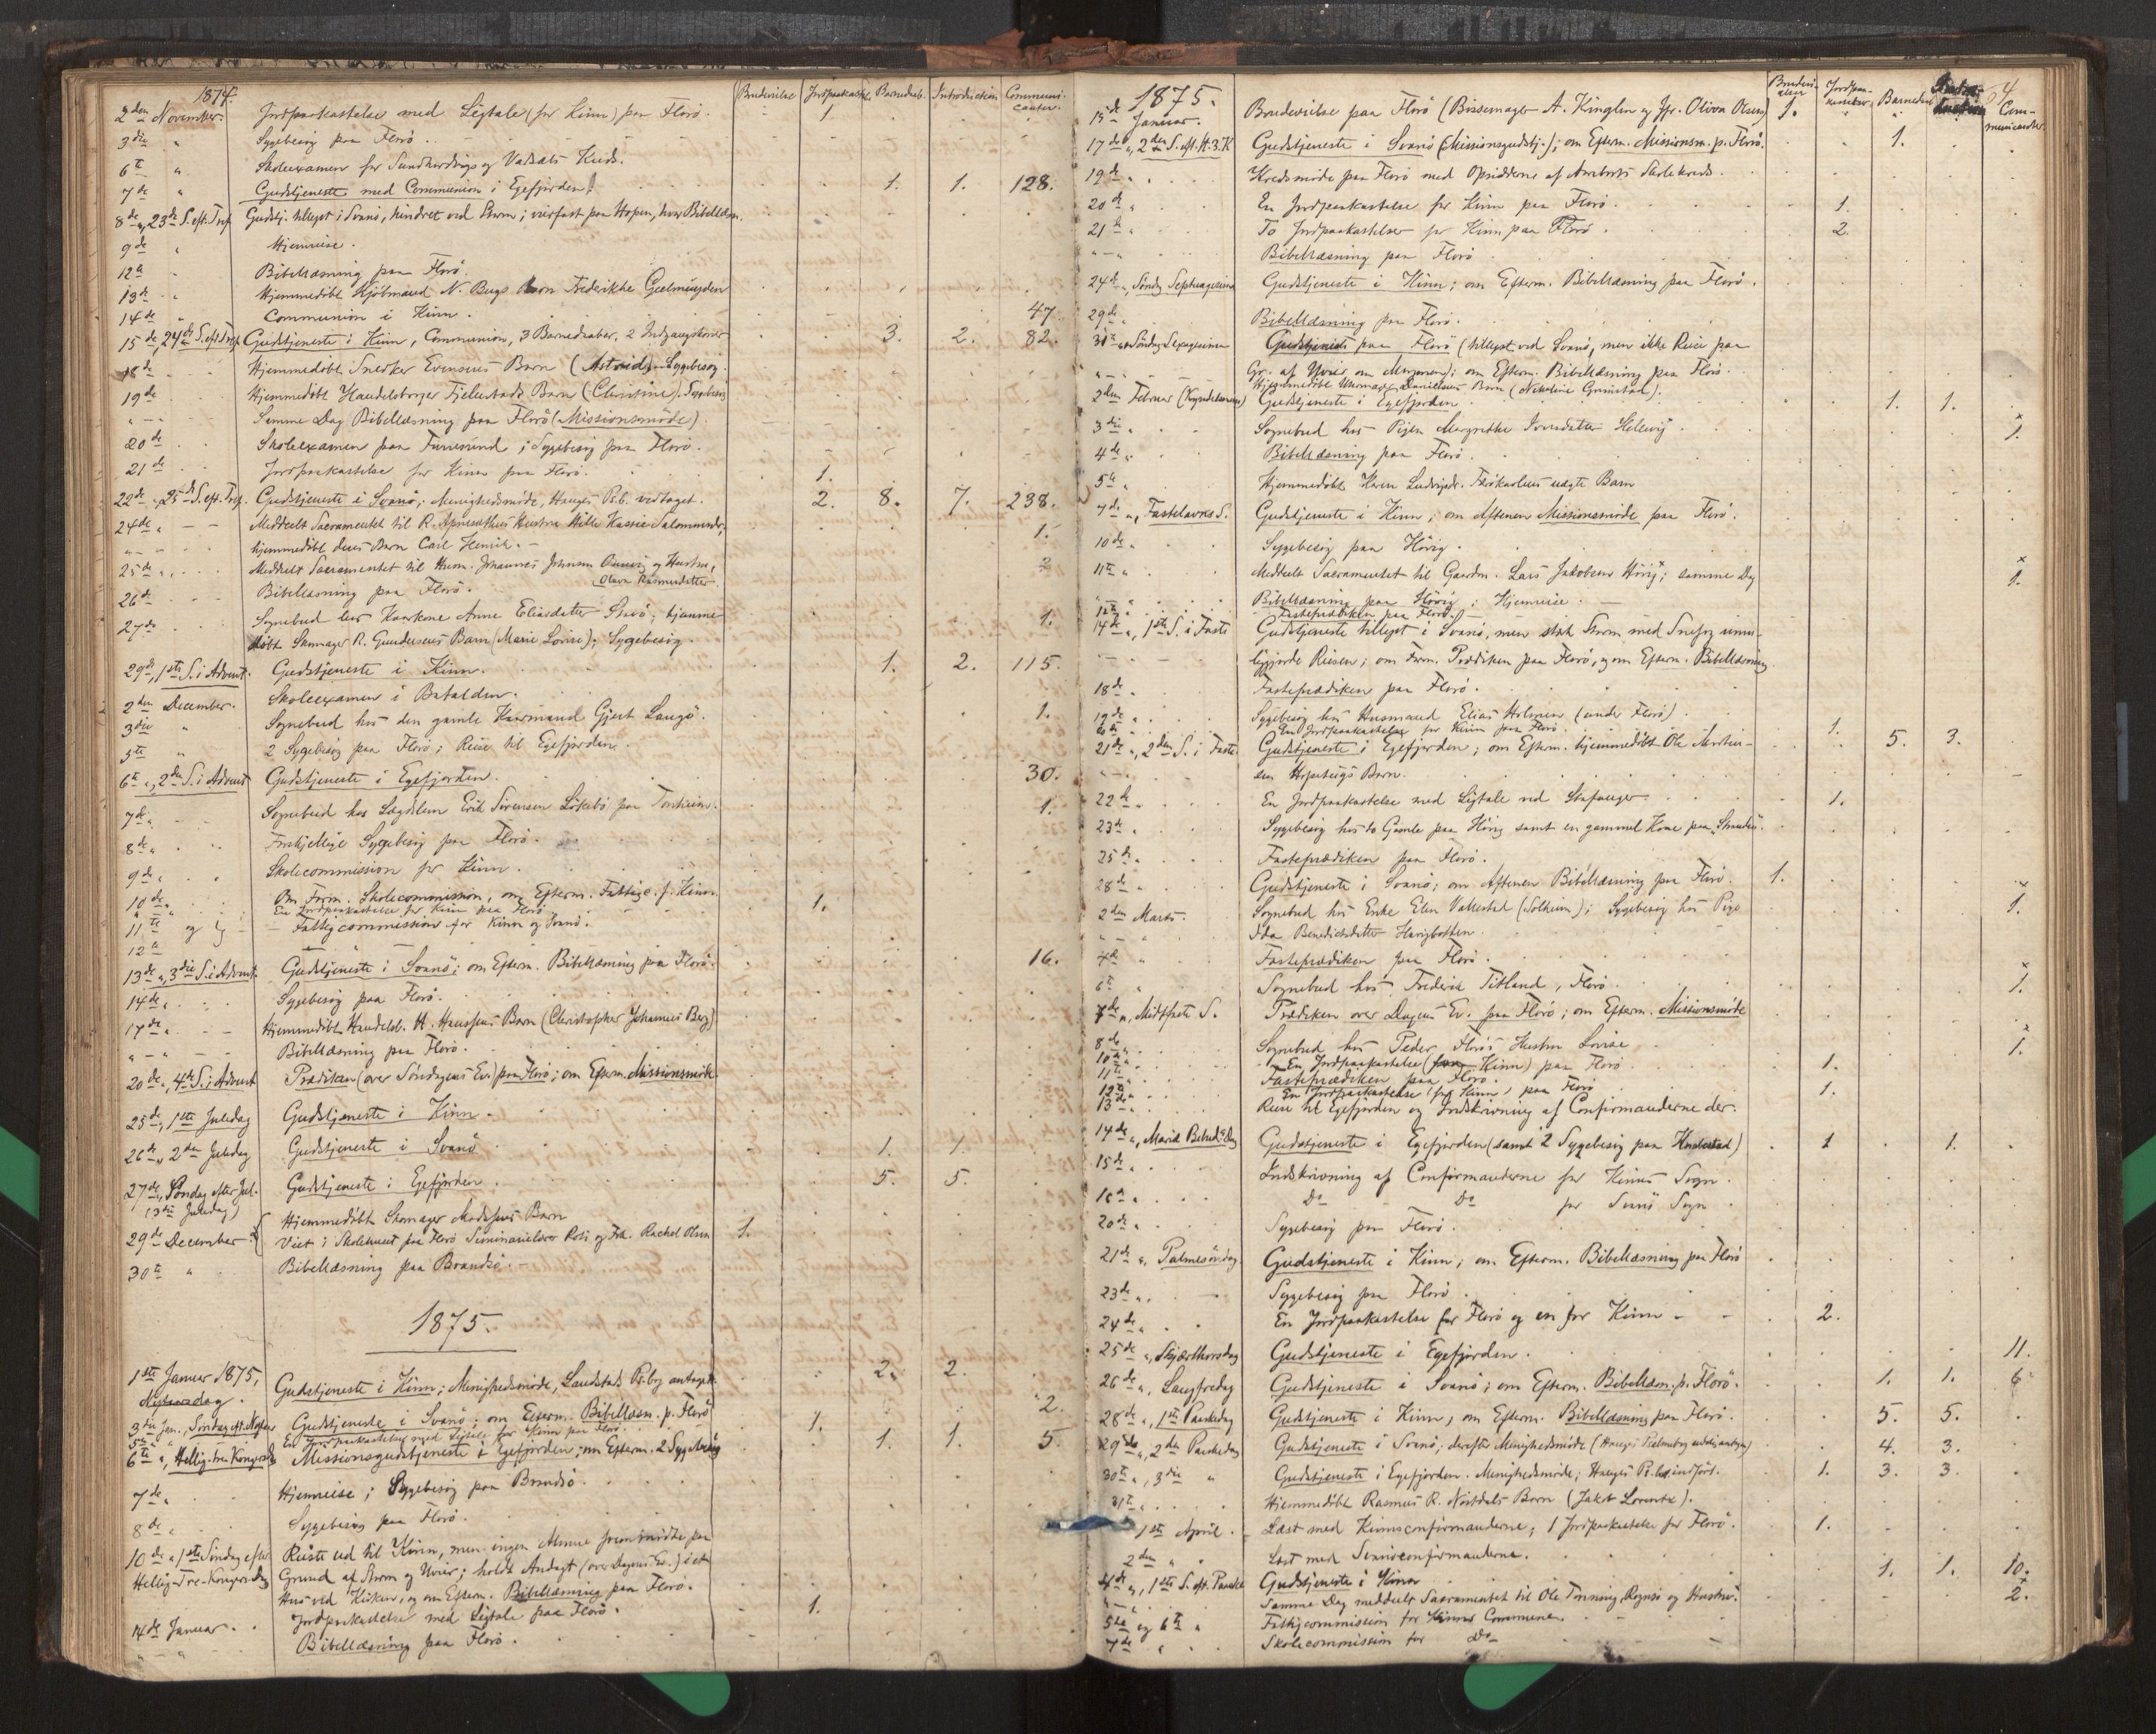 1874.
Brudevielse Jordpaakastel. Barnedaab. Introduction Communicanter.
2den November. Jordpaakastelse med Ligtale (for Kinn) paa Florö. 1
3die " Sygebesøg paa Florö.
6te " Skoleexamen for
7de " Gudstjeneste med Communion i Egefjorden. 1. 1. 128.
8de ", 23de S. eft. Tref. Gudstj. tillyst i Svanö, hindret ved Storm; veirfast paa Hopen, hvor Bibellæsn.
9de " Hjemreise.
12te " Bibellæsning paa Florö.
13de " Hjemmedöbt Kjöbmand N. Bugs Barn Frederikke
14de " Communion i Kinn. 47.
15de, 24de S. eft. Tref. Gudstjeneste i Kinn, Communion, 3 Barnedaaber, 2 Indgangskoner 3. 2. 82.
18de Hjemmedöbt Snedker Evensens Barn (Astrid). Sygebesøg.
19de Hjemmedöbt Handelsborger Barn (Christine). Sygebesøg
" - - Samme Dag Bibellæsning paa Florö (Missionsmöde)
20de Skoleexamen paa ; Sygebesøg paa Florö.
21de Jordpaakastelse for Kinn paa Florö. 1.
22de ", 25de S. eft. Tref. Gudstjeneste i Svanö; Menighedsmöde, Hauges Ps.b. vedtaget. 2. 8. 7. 238.
24de " - - Meddeelt Sacramentet til R. Hustru 1.
" - " hjemmedöbt deres Barn Carl Henrik. -
25de " Meddeelt Sacramentet til Husm. Johannes Johnsen og Hustru, 2
Olava Rasmusdatter
26de Bibellæsning paa Florö.
27de Sognebud hos Kaarkone Anne Eliasdatter ; hjemme- 1.
döbt Skomager R. Gundersens Barn (Marie Lovise); Sygebesøg.
29de, 1ste S. i Advent. Gudstjeneste i Kinn. 1. 2. 115.
2den December. Skoleexamen i Batalden.
3die " Sognebud hos den gamle Kaarmand Gjert Langö. 1.
5te " 2 Sygebesøg paa Florö; Reise til Egefjorden.
6te ", 2den S. i Advent Gudstjeneste i Egefjorden. 30.
7de " - - Sognebud hos Lægdslem Erik Sörensen paa 1.
8de " Forskjellige Sygebesøg paa Florö.
9de " Skolecommission for Kinn.
10de " Om Form. Skolecommission, om Efterm. Fattigc. f. Kinn.
En Jordpaakastelse for Kinn paa Florö 1.
11te og Fattigcommission for Kinn og Svanö.
12te
13de ", 3die S. i Advent Gudstjeneste i Svanö; om Efterm. Bibellæsning paa Florö. 16.
14de " Sygebesøg paa Florö.
17de " - - Hjemmedöbt Handelsb. H. Hanssens Barn (Christopher Johannes Berg)
" - " - - Bibellæsning paa Florö.
20de ", 4de S. i Advent Prædiken (over Söndagens Ev.) paa Florö; om Efterm. Missionsmöde
25de, 1ste Juledag Gudstjeneste i Kinn.
26de ", 2den Juledag Gudstjeneste i Svanö 1. 1.
27de, Söndag efter Jul. Gudstjeneste i Egefjorden 5. 5.
(3die Juledag)
29de December Hjemmedöbt Skomager Madssens Barn
Viet i Skolehuset paa Florö Seminarielærer og Frk. Rachel Olsen 1.
30te " Bibellæsning paa Brandsö. -
1875.
1ste Januar 1875, Gudstjeneste i Kinn; Menighedsmöde, Landstads Ps.bog antaget. 2. 2.
Nytaarsdag.
3die Jan., Söndag eft. Nytaar Gudstjeneste i Svanö; om Efterm. Bibellæsn. p. Florö 2.
5te " En Jordpaakastelse med Ligtale for Kinn paa Florö. 1.
6te ", Hellig-tre-Kongersd. Missionsgudstjeneste i Egefjorden; om Efterm. 2 Sygebesøg 1. 1. 5.
7de " Hjemreise; Sygebesøg paa Brandsö.
8de " Sygebesøg paa Florö.
10de ", 1ste Söndag efter Reiste ud til Kinn, men ingen Almue fremmödte paa
Hellig-Tre-Kongersdag Grund af Storm og Uveir; holdt Andagt (over Dagens Ev.) i et
Hus ved Kirken, og om Efterm. Bibellæsning paa Florö.
14de Januar. Jordpaakastelse med Ligtale paa Florö. 1.
" - " Bibellæsning paa Florö.
1875.
64
Brudevielser Jordpaakastelser Barnedaab Communicanter.
15de Januar. Brudevielse paa Florö (Bissemager A. og Jfr. Oliva Olsen) 1.
17de ", 2den S. eft. H. 3. K Gudstjeneste i Svanö (Missionsgudstj.); om Efterm. Missionsm. p. Florö. 1.
19de " Kredsmöde paa Florö med Opsidderne af Skolekreds.
20de " En Jordpaakastelse for Kinn paa Florö. 1.
21de " To Jordpaakastelser for Kinn paa Florö. 2.
" - " Bibellæsning paa Florö
24de ", Söndag Septuagesima Gudstjeneste i Kinn; om Efterm. Bibellæsning paa Florö.
29de " Bibellæsning paa Florö.
31te ", Söndag Sexagesima Gudstjeneste paa Florö (tillyst ved Svanö, men ikke Reise paa
" - - - Gr. af Uveir om Morgenen); om Efterm. Bibellæsning paa Florö.
Hjemmedöbt Uhrmager Danielsens Barn (Nikoline Grimstad).
2den Februar (Kyndelsmesse) Gudstjeneste i Egefjorden. 1. 1.
3die " Sognebud hos Pigen Margrethe Iversdatter Hellevig. 1.
4de " Bibellæsning paa Florö.
5te " Hjemmedöbt Karen Ludvigsdr. uægte Barn
7de ", Fastelavns S. Gudstjeneste i Kinn; om Aftenen Missionsmöde paa Florö.
10de " Sygebesøg paa Hövig.
11te " Meddeelt Sacramentet til Gaardm. Lars Jakobsen Hövig; samme Dag 1.
Bibellæsning paa Hövig; Hjemreise.
12te " Fasteprædiken paa Florö.
14de ", 1ste S. i Faste Gudstjeneste tillyst i Svanö, men stærk Storm med Snefog umu-
liggjorde Reisen; om Form. Prædiken paa Florö, og om Efterm. Bibellæsning
18de " Fasteprædiken paa Florö.
19de " Sygebesøg hos Husmand Elias Holmen (under Florö)
20de " En Jordpaakastelse for Kinn paa Florö 1.
21de ", 2den S. i Faste Gudstjeneste i Egefjorden; om Efterm. hjemmedöbt Ole Morten- 5. 3.
sen Barn.
22de " En Jordpaakastelse med Ligtale ved Stavanger. 1.
23de " Sygebesøg hos to Gamle paa Hövig samt en gammel Kone paa
25de " Fasteprædiken paa Florö.
28de " Gudstjeneste i Svanö; om Aftenen Bibellæsning paa Florö. 1.
2den Marts. Sognebud hos Enke Elen Vallestad (Solheim); Sygebesøg hos Pige 1.
Ida Benedictsdatter Havigbotten.
4de " Fasteprædiken paa Florö.
6te " Sognebud hos Frederik Titland, Florö. 1.
7de ", Midtfaste S. Prædiken over Dagens Ev. paa Florö; om Efterm. Missionsmöde
8de " Sognebud hos Peder Florö's Hustru Lovise 1.
10de " En Jordpaakastelse (for Kinn) paa Florö 1.
11te " Fasteprædiken paa Florö.
12te " En Jordpaakastelse (for Kinn) paa Florö 1.
13de " Reise til Egefjorden og Indskrivning af Confirmanderne der.
14de ", Mariæ Bebud. Dag Gudstjeneste i Egefjorden (samt 2 Sygebesøg paa ) 1 1.
15de " Indskrivning af Confirmanderne for Kinns Sogn.
16de " Do - Do for Svanö Sogn
20de " Sygebesøg paa Florö.
21de ", Palmesöndag Gudstjeneste i Kinn; om Efterm. Bibellæsning paa Florö
23de " Sygebesøg paa Florö.
24de " En Jordpaakastelse for Florö og en for Kinn - 2.
25de ", Skjærthorsdag Gudstjeneste i Egefjorden. 11.
26de ", Langfredag Gudstjeneste i Svanö; om Efterm. Bibellæsn. p. Florö. 1. 1. 6
28de ", 1ste Paaskedag Gudstjeneste i Kinn; om Efterm. Bibellæsning paa Florö. 5. 5.
29de ", 2den Paaskedag Gudstjeneste i Svanö; derefter Menighedsmöde (Hauges Psalmebog ) 4. 3.
30te ", 3die " Gudstjeneste i Egefjorden. Menighedsmöde; Hauges Ps.b. indfört. 1. 3. 3.
31te " Hjemmedöbt Rasmus R. Nordals Barn (Jakob Lorentz).
1ste April. Læst med Kinnsconfirmanderne; 1 Jordpaakastelse for Florö. 1.
2den " Læst med Svanöconfirmanderne.
4de ", 1ste S. eft. Paaske Gudstjeneste i Kinn 1. 1. 10.
" - Samme Dag meddeelt Sacramentet til Ole og Hustru. 2.
5te og 6te " Fattigcommission for Kinns Commune.
7de " Skolecommission for Do -